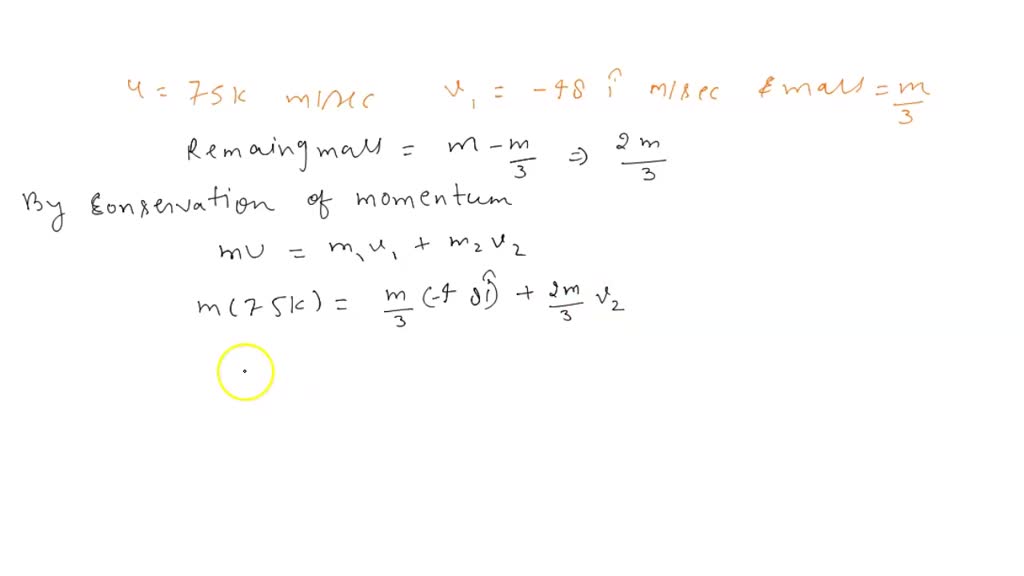 u = 75k m/sec v₁ = -48 î m/sec & mass = m/3
Remaing mass = m - m/3 ⇒ 2m/3
By Conservation of momentum
mu = m₁v₁ + m₂v₂
m(75k) = m/3 (-48î) + 2m/3 v₂